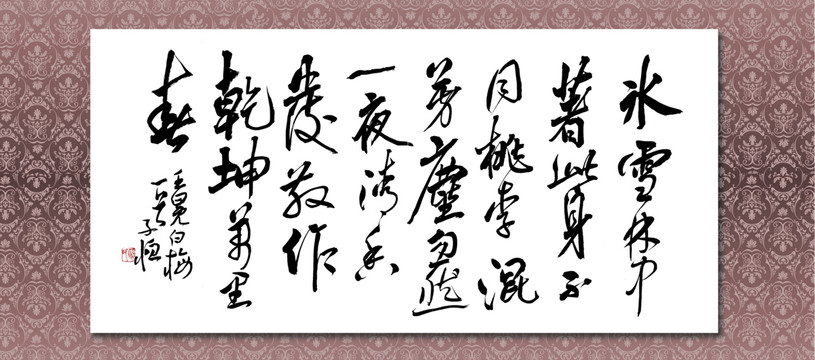 氷雪林中
著此身不
同桃李混
芳塵忽然
一夜清香
發散作
乾坤萬里
春
王冕白梅
子恒